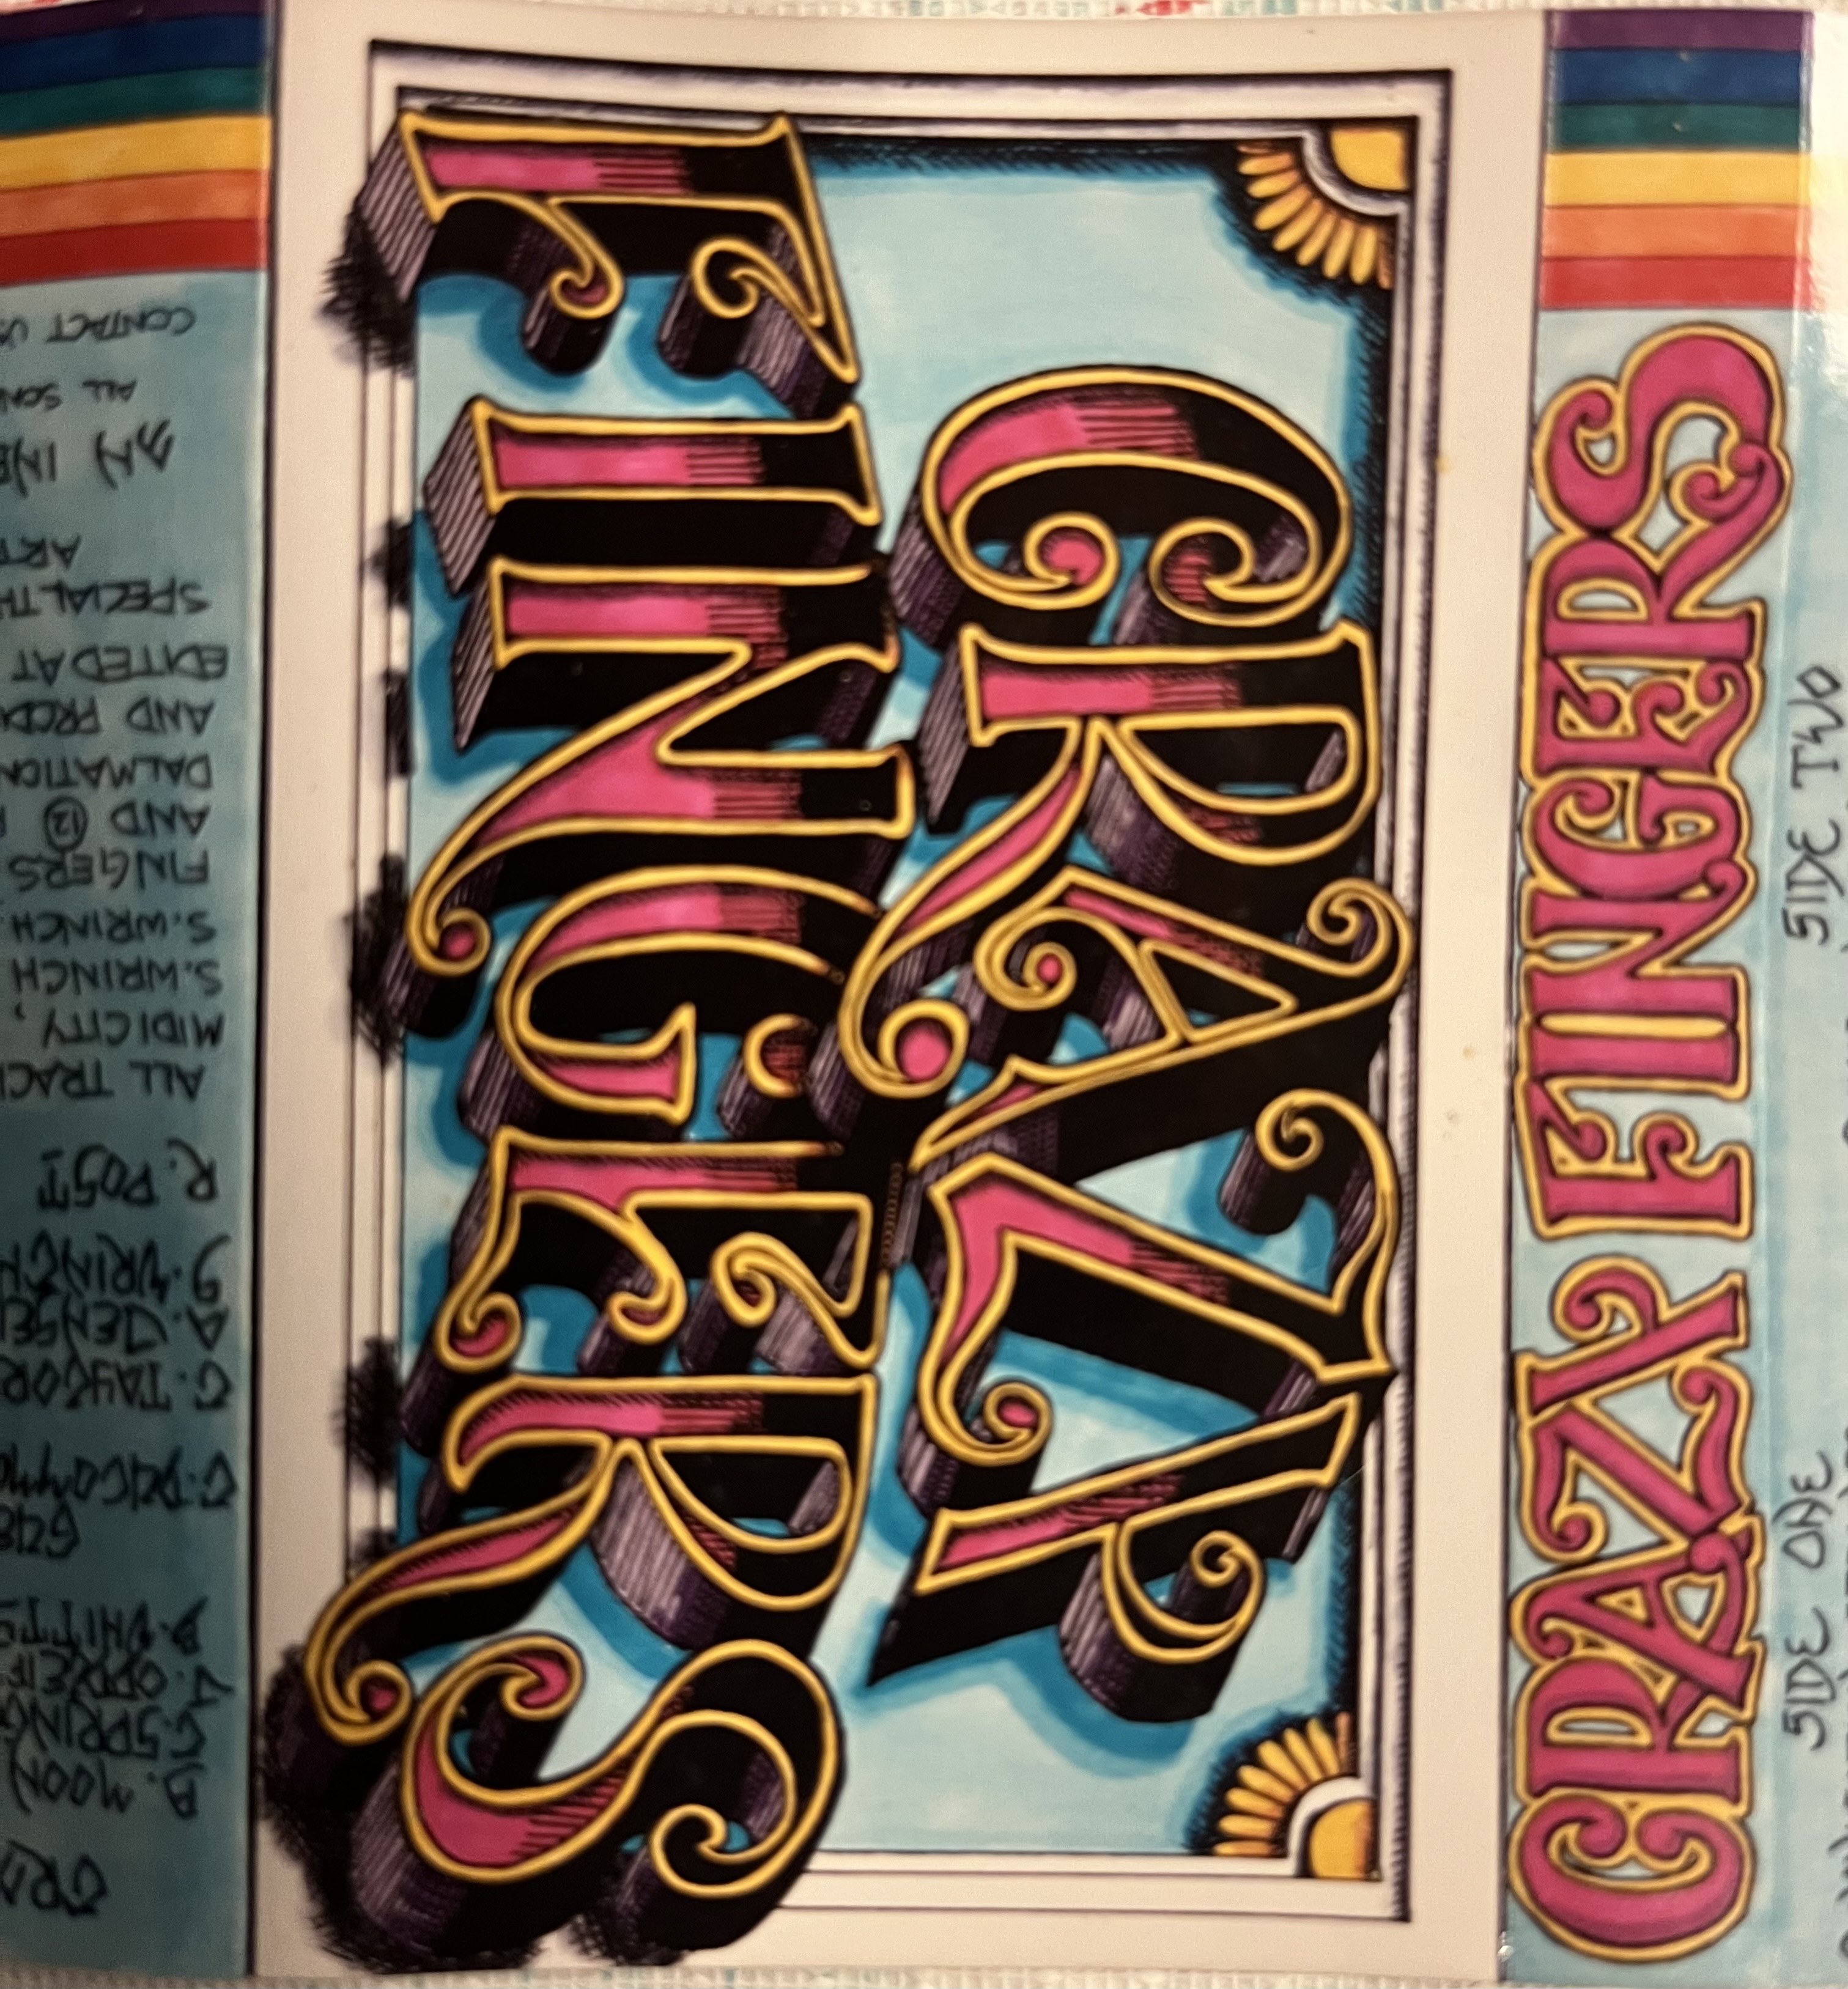 CRAZY
FINGERS
CRAZY FINGERS
SIDE ONE
SIDE TWO
B. MOON
C. SPRING
B. WHITT
C. TAYLOR
A. JENSE
R. POST
ALL TRAC
MIDICITY,
S. WRINCH
S. WRINCH
FINGERS
AND 12
DALMATION
AND PRODU
EDITED AT
SPECIAL TH
ART
ALL SON
CONTACT US